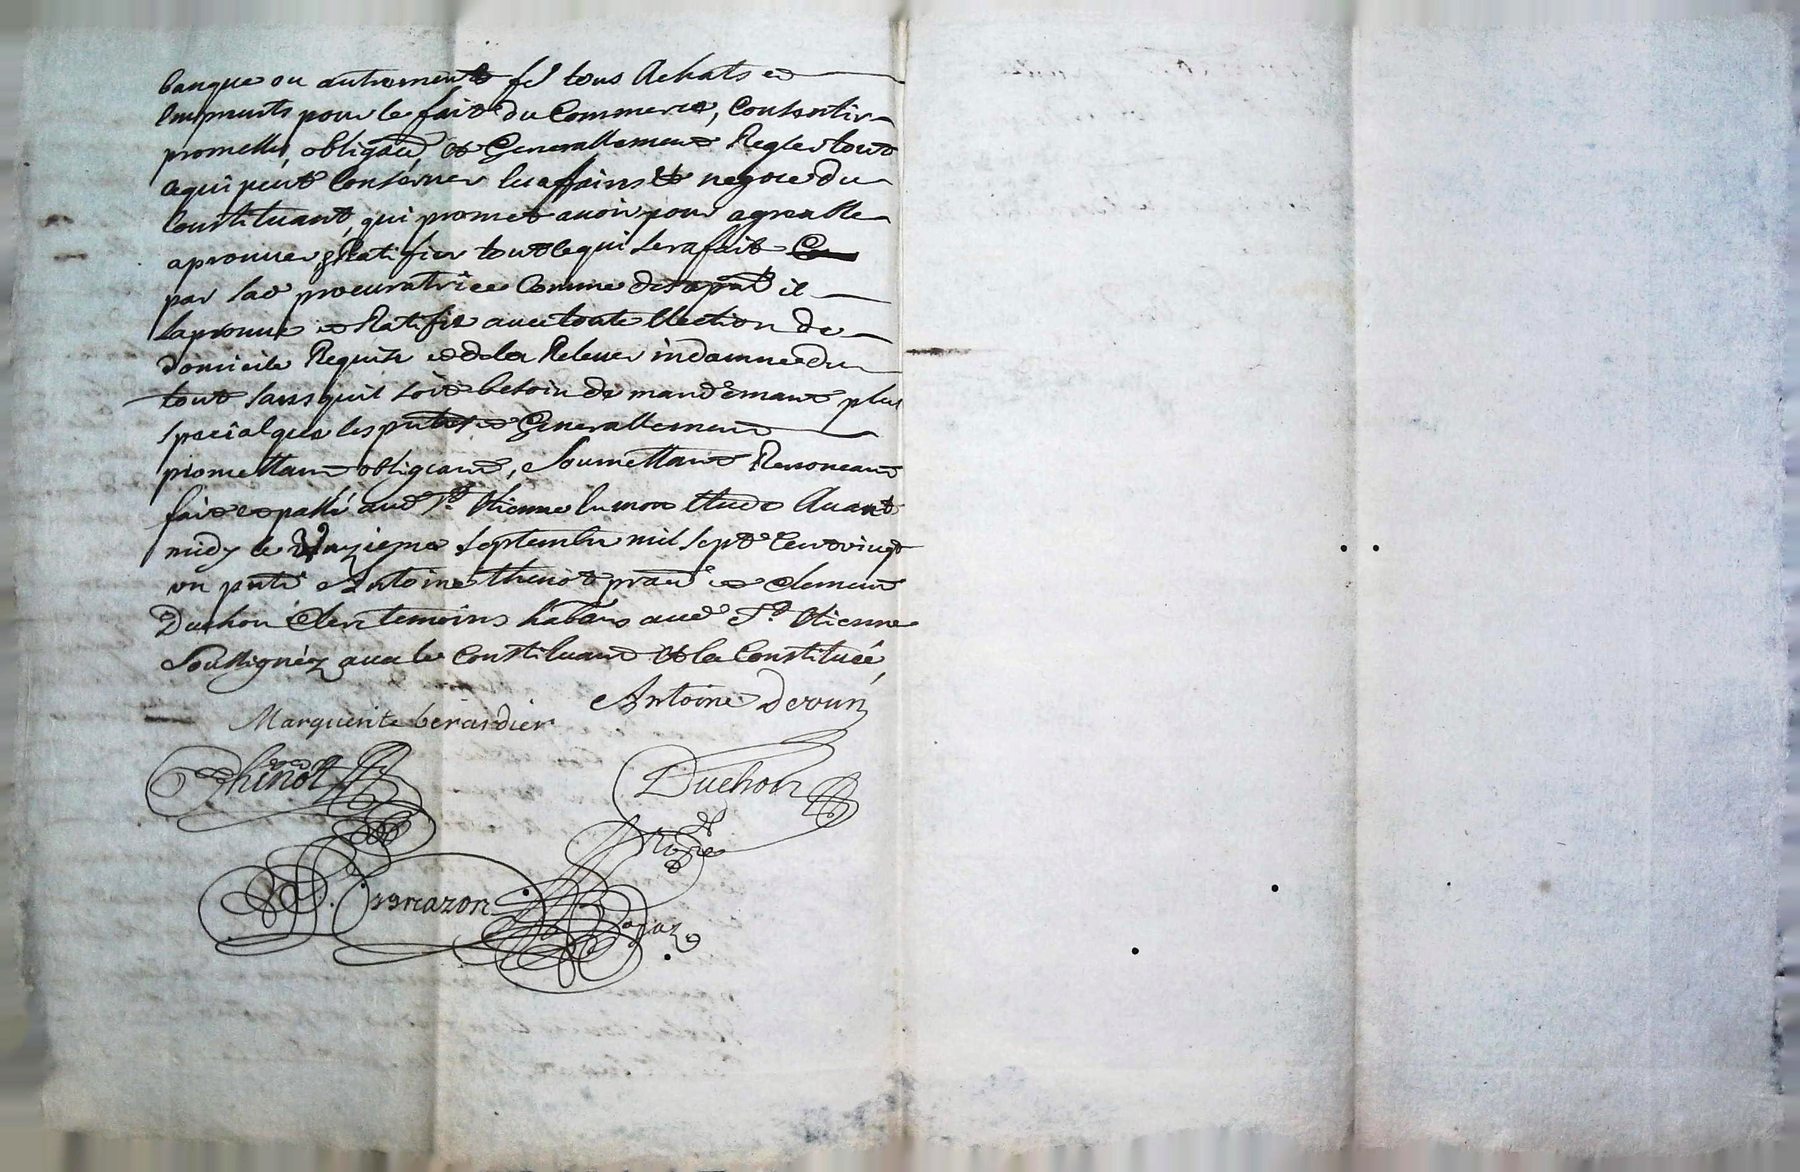 banque ou autrement fe tous Achats et
Emprunts pour le fait du Commerce, Consentir
promesses, obligaõn, et Generallement Regler tout
ce qui peut Conserner les affaires et negoce du
Constituant, qui promet avoir pour agreable
aprouuer & Ratifier tout ce qui sera fait
par lad procuratrice Comme des apnt il
laprouue et Ratifie auec toute Election de
domicile Requise et de la Releuer indamnee du
tout sans quil soit besoin de mandemant plus
special que les pntes et Generallement
promettant obligeant, Soumettant Renonceant
fait et passé aud St. Etienne en mon Etude Auant
midy le septembre mil sept Cent vingt
un pntz Antoine Thenot pratn et Clement
Duchon Clerc temoins habens aud St. Etienne
Soussignéz auec le Constituant et la Constituée,
Antoine Deuun
Marguerite berardier
Thenot
Duchon